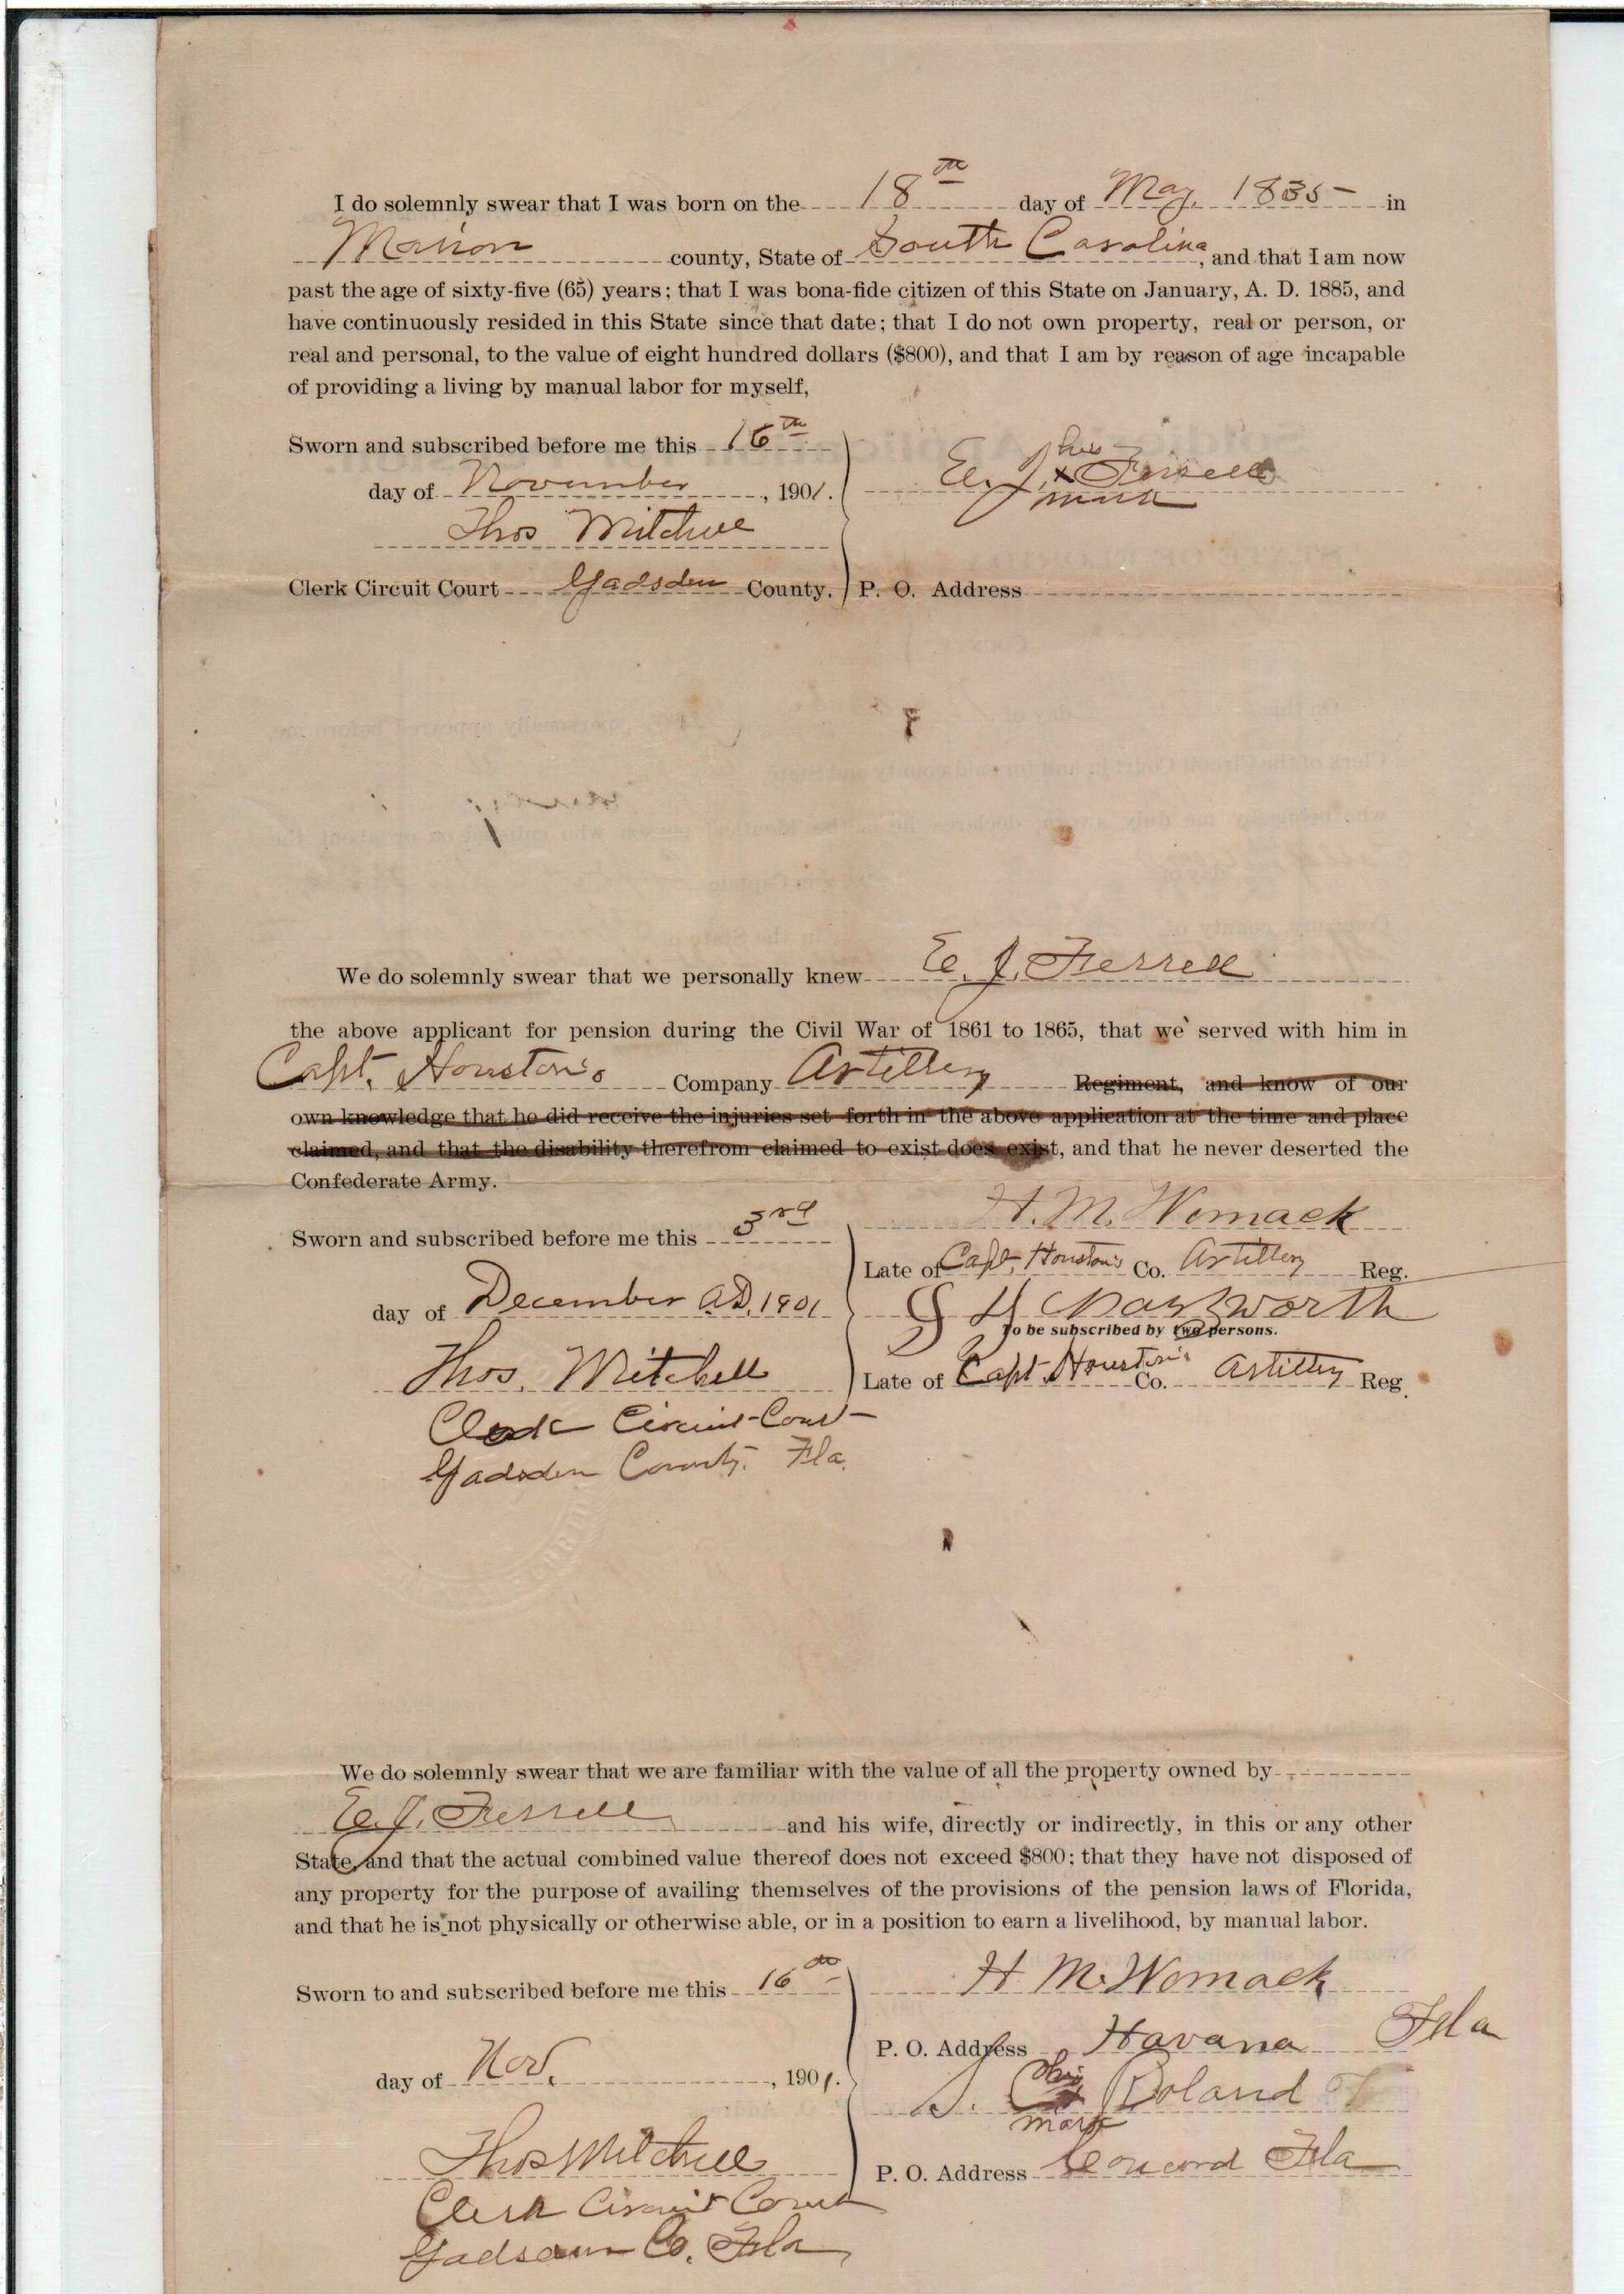 I do solemnly swear that I was born on the 18th day of May, 1835 in
Marion county, State of South Carolina, and that I am now
past the age of sixty-five (65) years; that I was bona-fide citizen of this State on January, A. D. 1885, and
have continuously resided in this State since that date; that I do not own property, real or person, or
real and personal, to the value of eight hundred dollars ($800), and that I am by reason of age incapable
of providing a living by manual labor for myself,
Sworn and subscribed before me this 16th
day of November, 1901.
his
E. J. x Ferrell
mark
Thos Mitchell
Clerk Circuit Court Gadsden County.
P. O. Address
We do solemnly swear that we personally knew E. J. Ferrell
the above applicant for pension during the Civil War of 1861 to 1865, that we served with him in
Capt. Houston's Company Artillery Regiment, and know of our
own knowledge that he did receive the injuries set forth in the above application at the time and place
claimed, and that the disability therefrom claimed to exist does exist, and that he never deserted the
Confederate Army.
Sworn and subscribed before me this 3rd
day of December A.D. 1901
Thos. Mitchell
Clerk Circuit Court
Gadsden County. Fla.
H. M. Womack
Late of Capt. Houston's Co. Artillery Reg.
To be subscribed by two persons.
Late of Capt. Houston's Co. Artillery Reg.
We do solemnly swear that we are familiar with the value of all the property owned by
E. J. Ferrell and his wife, directly or indirectly, in this or any other
State, and that the actual combined value thereof does not exceed $800; that they have not disposed of
any property for the purpose of availing themselves of the provisions of the pension laws of Florida,
and that he is not physically or otherwise able, or in a position to earn a livelihood, by manual labor.
Sworn to and subscribed before me this 16th
day of Nov. , 1901.
Thos Mitchell
Clerk Circuit Court
Gadsden Co. Fla
H. M. Womack
P. O. Address Havana Fla
his
S. x Boland
mark
P. O. Address Concord Fla